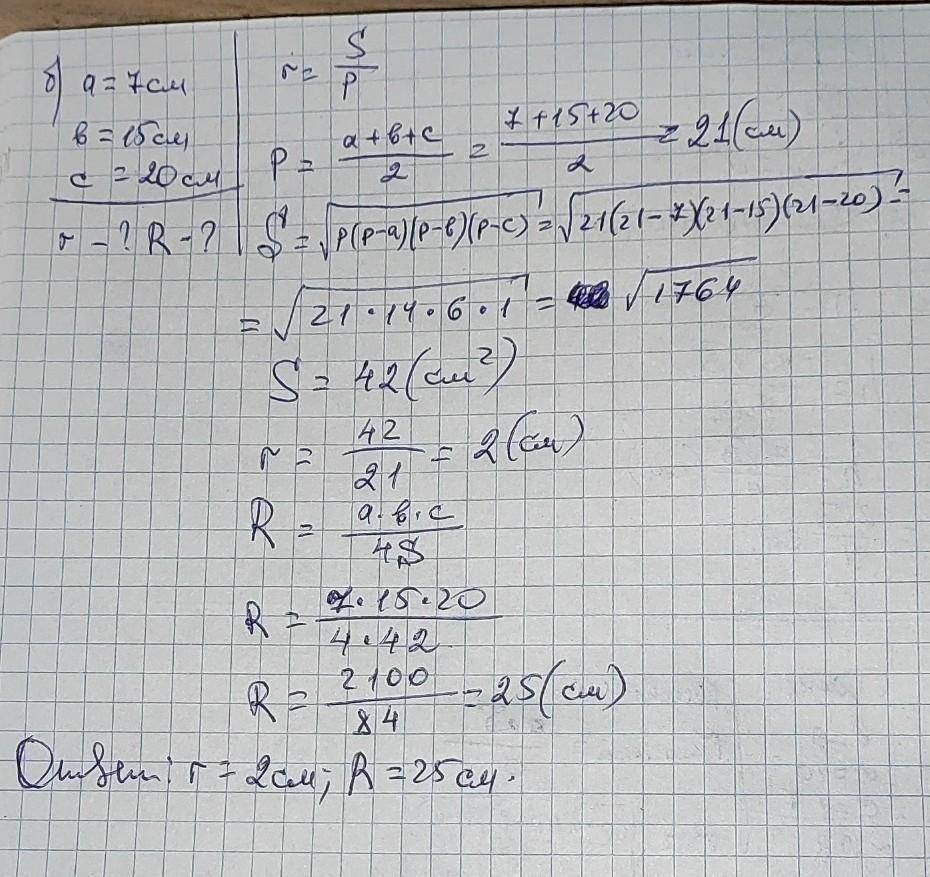 б) a = 7 см
в = 15 см
c = 20 см
r - ? R - ?
r = S/P
P = (a+в+c)/2 = (7+15+20)/2 = 21 (см)
S = √(P(P-a)(P-в)(P-c)) = √(21(21-7)(21-15)(21-20)) =
= √(21·14·6·1) = √1764
S = 42 (см²)
r = 42/21 = 2 (см)
R = (a·в·c)/(4S)
R = (7·15·20)/(4·42)
R = 2100/84 = 25 (см)
Ответ: r = 2 см; R = 25 см.